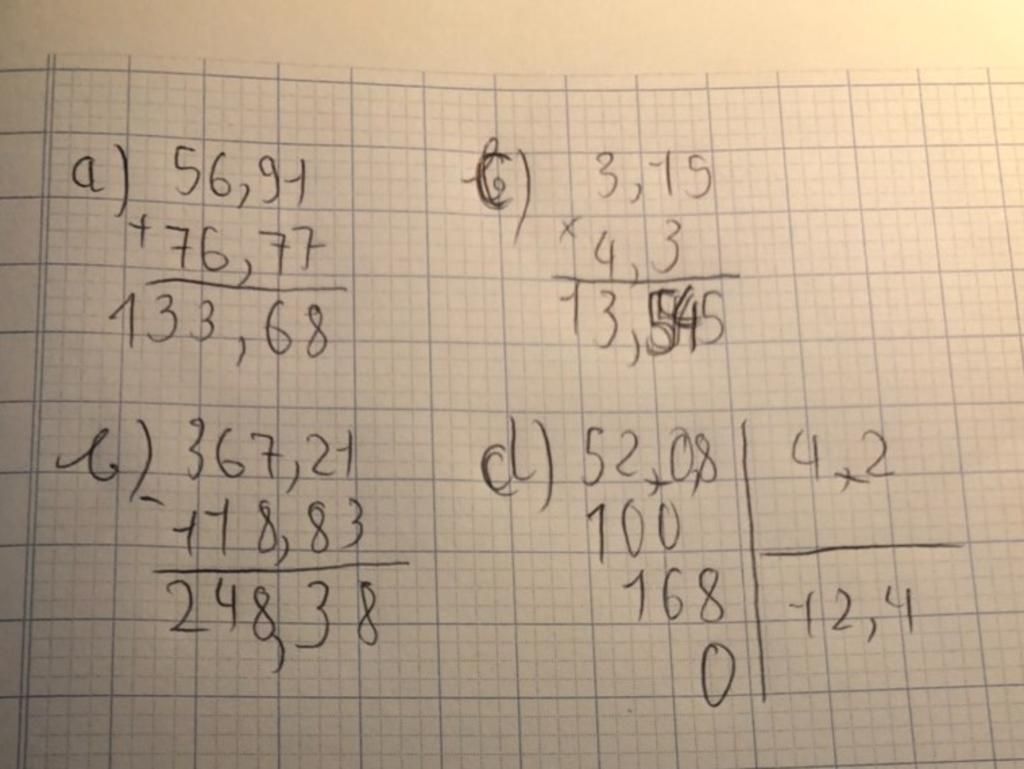 a) 56,91
+ 76,77
133,68
c) 3,15
x 4,3
13,545
b) 367,21
- 118,83
248,38
d) 52,08 | 4,2
100
168 | 12,4
0